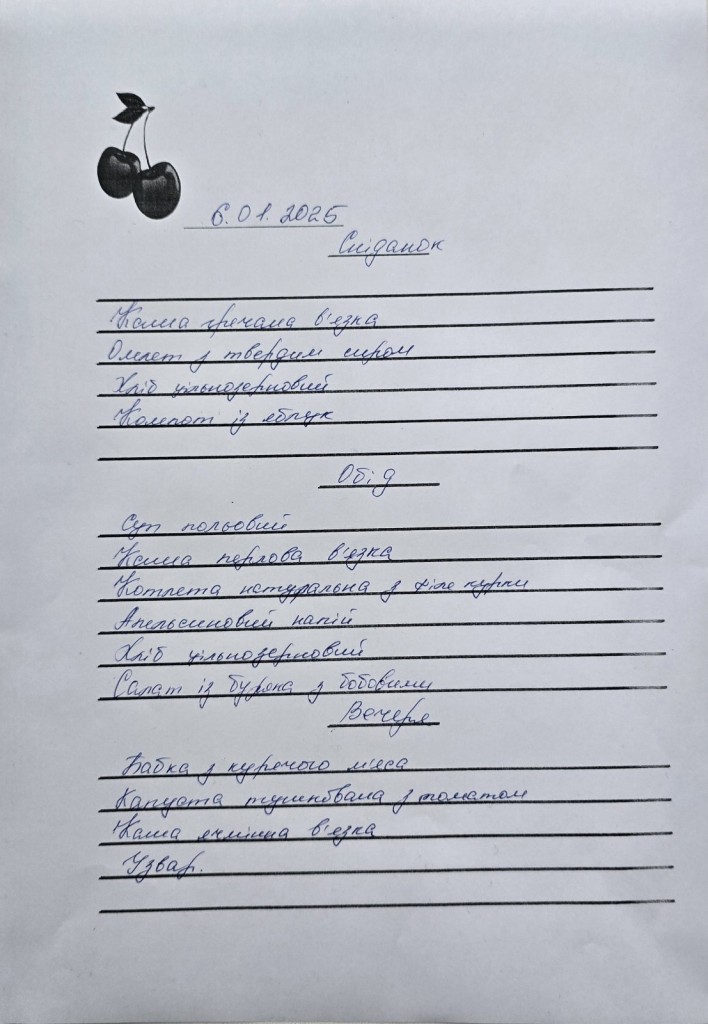 6.01.2025
Сніданок
Каша гречана в'язка
Омлет з твердим сиром
Хліб цільнозерновий
Компот із яблук
Обід
Суп польовий
Каша перлова в'язка
Котлета натуральна з філе курки
Апельсиновий напій
Хліб цільнозерновий
Салат із буряка з бобовими
Вечеря
Бабка з курячого м'яса
Капуста тушкована з томатом
Каша ячмінна в'язка
Узвар.